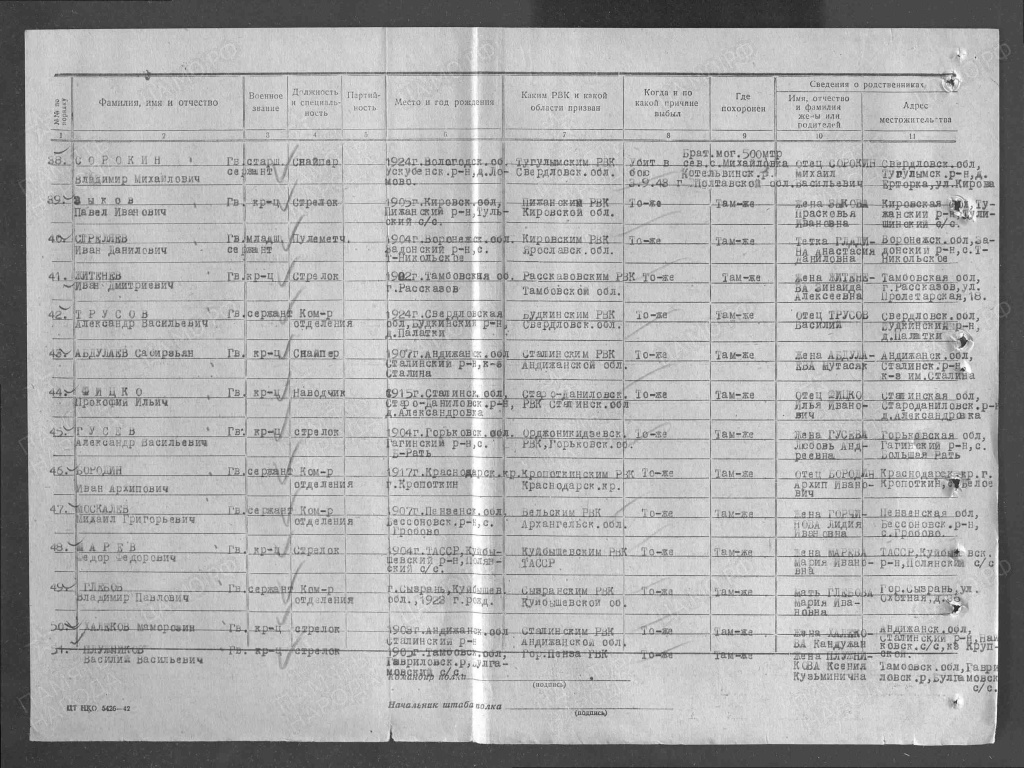 Сведения о родственниках
№№ по порядку
Фамилия, имя и отчество
Военное звание
Должность и специальность
Партийность
Место и год рождения
Каким РВК и какой области призван
Когда и по какой причине выбыл
Где похоронен
Имя, отчество и фамилия жены или родителей
Адрес местожительства
1 2 3 4 5 6 7 8 9 10 11
38. СОРОКИН Гв.старш. Снайпер 1924г.Вологодск.об. Тугулымским РВК Убит в Брат.мог.500мтр отец СОРОКИН Свердловск.обл,
Владимир Михайлович сержант Ускубенск.р-н,д. Свердловск.обл. бою сев.с.Михайловка Михаил Тугулымск.р-н,д.
мово. 3.9.43 г Котельвинск.р. Полтавской обл. Васильевич Ерторка,ул.Кирова
39. Павел Иванович Гв. кр-ц Стрелок 1905г.Кировск.обл, Пижанским РВК То-же Там-же Жена Кировская обл,
Пижанский р-н, Кировской обл. Прасковья
ский с/с. Ивановна с/с.
40. СТРЕЛЯЕВ Гв.младш. Пулеметч. 1904г.Воронежск.обл. Кировским РВК То-же Там-же Тетка Воронежск.обл,
Иван Данилович сержант Задонский р-н,с. Ярославск.обл. НА Анастасия донский р-н,с.Т-
Т-Никольское Даниловна Никольское
41. ЖИТЕНЕВ Гв.кр-ц Стрелок 1902г.Тамбовская об. Рассказовским РВК То-же Там-же Жена ЖИТЕНЕ- Тамбовская обл,
Иван Дмитриевич г.Рассказов Тамбовской обл. ВА Зинаида г.Рассказов,ул.
Алексеевна Пролетарская,18.
42. ТРУСОВ Гв.сержант Ком-р 1924г.Свердловская Будкинским РВК То-же Там-же Отец ТРУСОВ Свердловск.обл,
Александр Васильевич отделения обл,Будкинский р-н, Свердловск.обл. Василий Будкинский р-н,
д.Палатки д.Палатки
43. АБДУЛАЕВ Гв. кр-ц Снайпер 1907г.Андижанск.обл Сталинским РВК То-же Там-же Жена АБДУЛА- Андижанск.обл,
Сталинский р-н,к-з Андижанской обл. ЕВА Сталинск.р-н,
Сталина к-з им.Сталина
44. ФИЦКО Гв. кр-ц Наводчик 1915г.Сталинск.обл, Старо-Даниловск. То-же Там-же Отец ФИЦКО Сталинская обл,
Прокофий Ильич Старо-Даниловск.р-н, РВК Сталинск.обл Илья Ивано- Староданиловск.р-н
д.Александровка вич д.Александровка
45. ГУСЕВ Гв. кр-ц стрелок 1904г.Горьковск.обл. Орджоникидзевск. То-же Там-же Жена ГУСЕВА Горьковская обл,
Александр Васильевич Гагинский р-н,с. РВК,Горьковск.об. Любовь Анд- Гагинский р-н,с.
Б-Рать реевна Большая Рать
46. БОРОДИН Гв.сержант Ком-р 1917г.Краснодарск.кр. Кропоткинским РВК То-же Там-же Отец БОРОДИН Краснодарск.кр.г.
Иван Архипович отделения г.Кропоткин Краснодарск.кр. Архип Ивано- Кропоткин,
вич
47. МОСКАЛЕВ Гв.сержант Ком-р 1907г.Пензенск.об. Вельским РВК То-же Там-же Жена Пензенская обл,
Михаил Григорьевич отделения Бессоновск.р-н,с. Архангельск.об. НОВА Лидия Бессоновск.р-н,
Гробово Ивановна с.Гробово.
48. МАРЕВ Гв. кр-ц Стрелок 1904г.ТАССР,Куйбы- Куйбышевским РВК То-же Там-же Жена ТАССР,Куйбышевск.
Федор Федорович шевский р-н,Полян- ТАССР Мария Ивано- р-н,Полянский с/с
ский с/с. вна
49. ГЛЕБОВ Гв.сержант Ком-р г.Сызрань,Куйбышев. Сызранским РВК То-же Там-же Мать ГЛЕБОВА Гор.Сызрань,ул.
Владимир Павлович отделения обл.,1923 г.рожд. Куйбышевской об. Мария Ива-
новна
50. ХАЛЕКОВ Маморозин Гв. кр-ц стрелок 1903г.Андижанск.обл Сталинским РВК То-же Там-же Жена ХАЛЕКО- Андижанск.обл,
Сталинский р-н Андижанской обл. ВА Кандужан Сталинский р-н,
51. Гв. кр-ц стрелок 1905г.Тамбовск.обл, Гор.Пенза РВК То-же Там-же Жена
Василий Васильевич Гавриловск.р, КОВА Ксения Тамбовск.обл,Гаври
мовский с/с. Кузьминична ловск.р,
с/с.
Командир полка
(подпись)
Начальник штаба полка
(подпись)
ЦТ НКО 5426—42